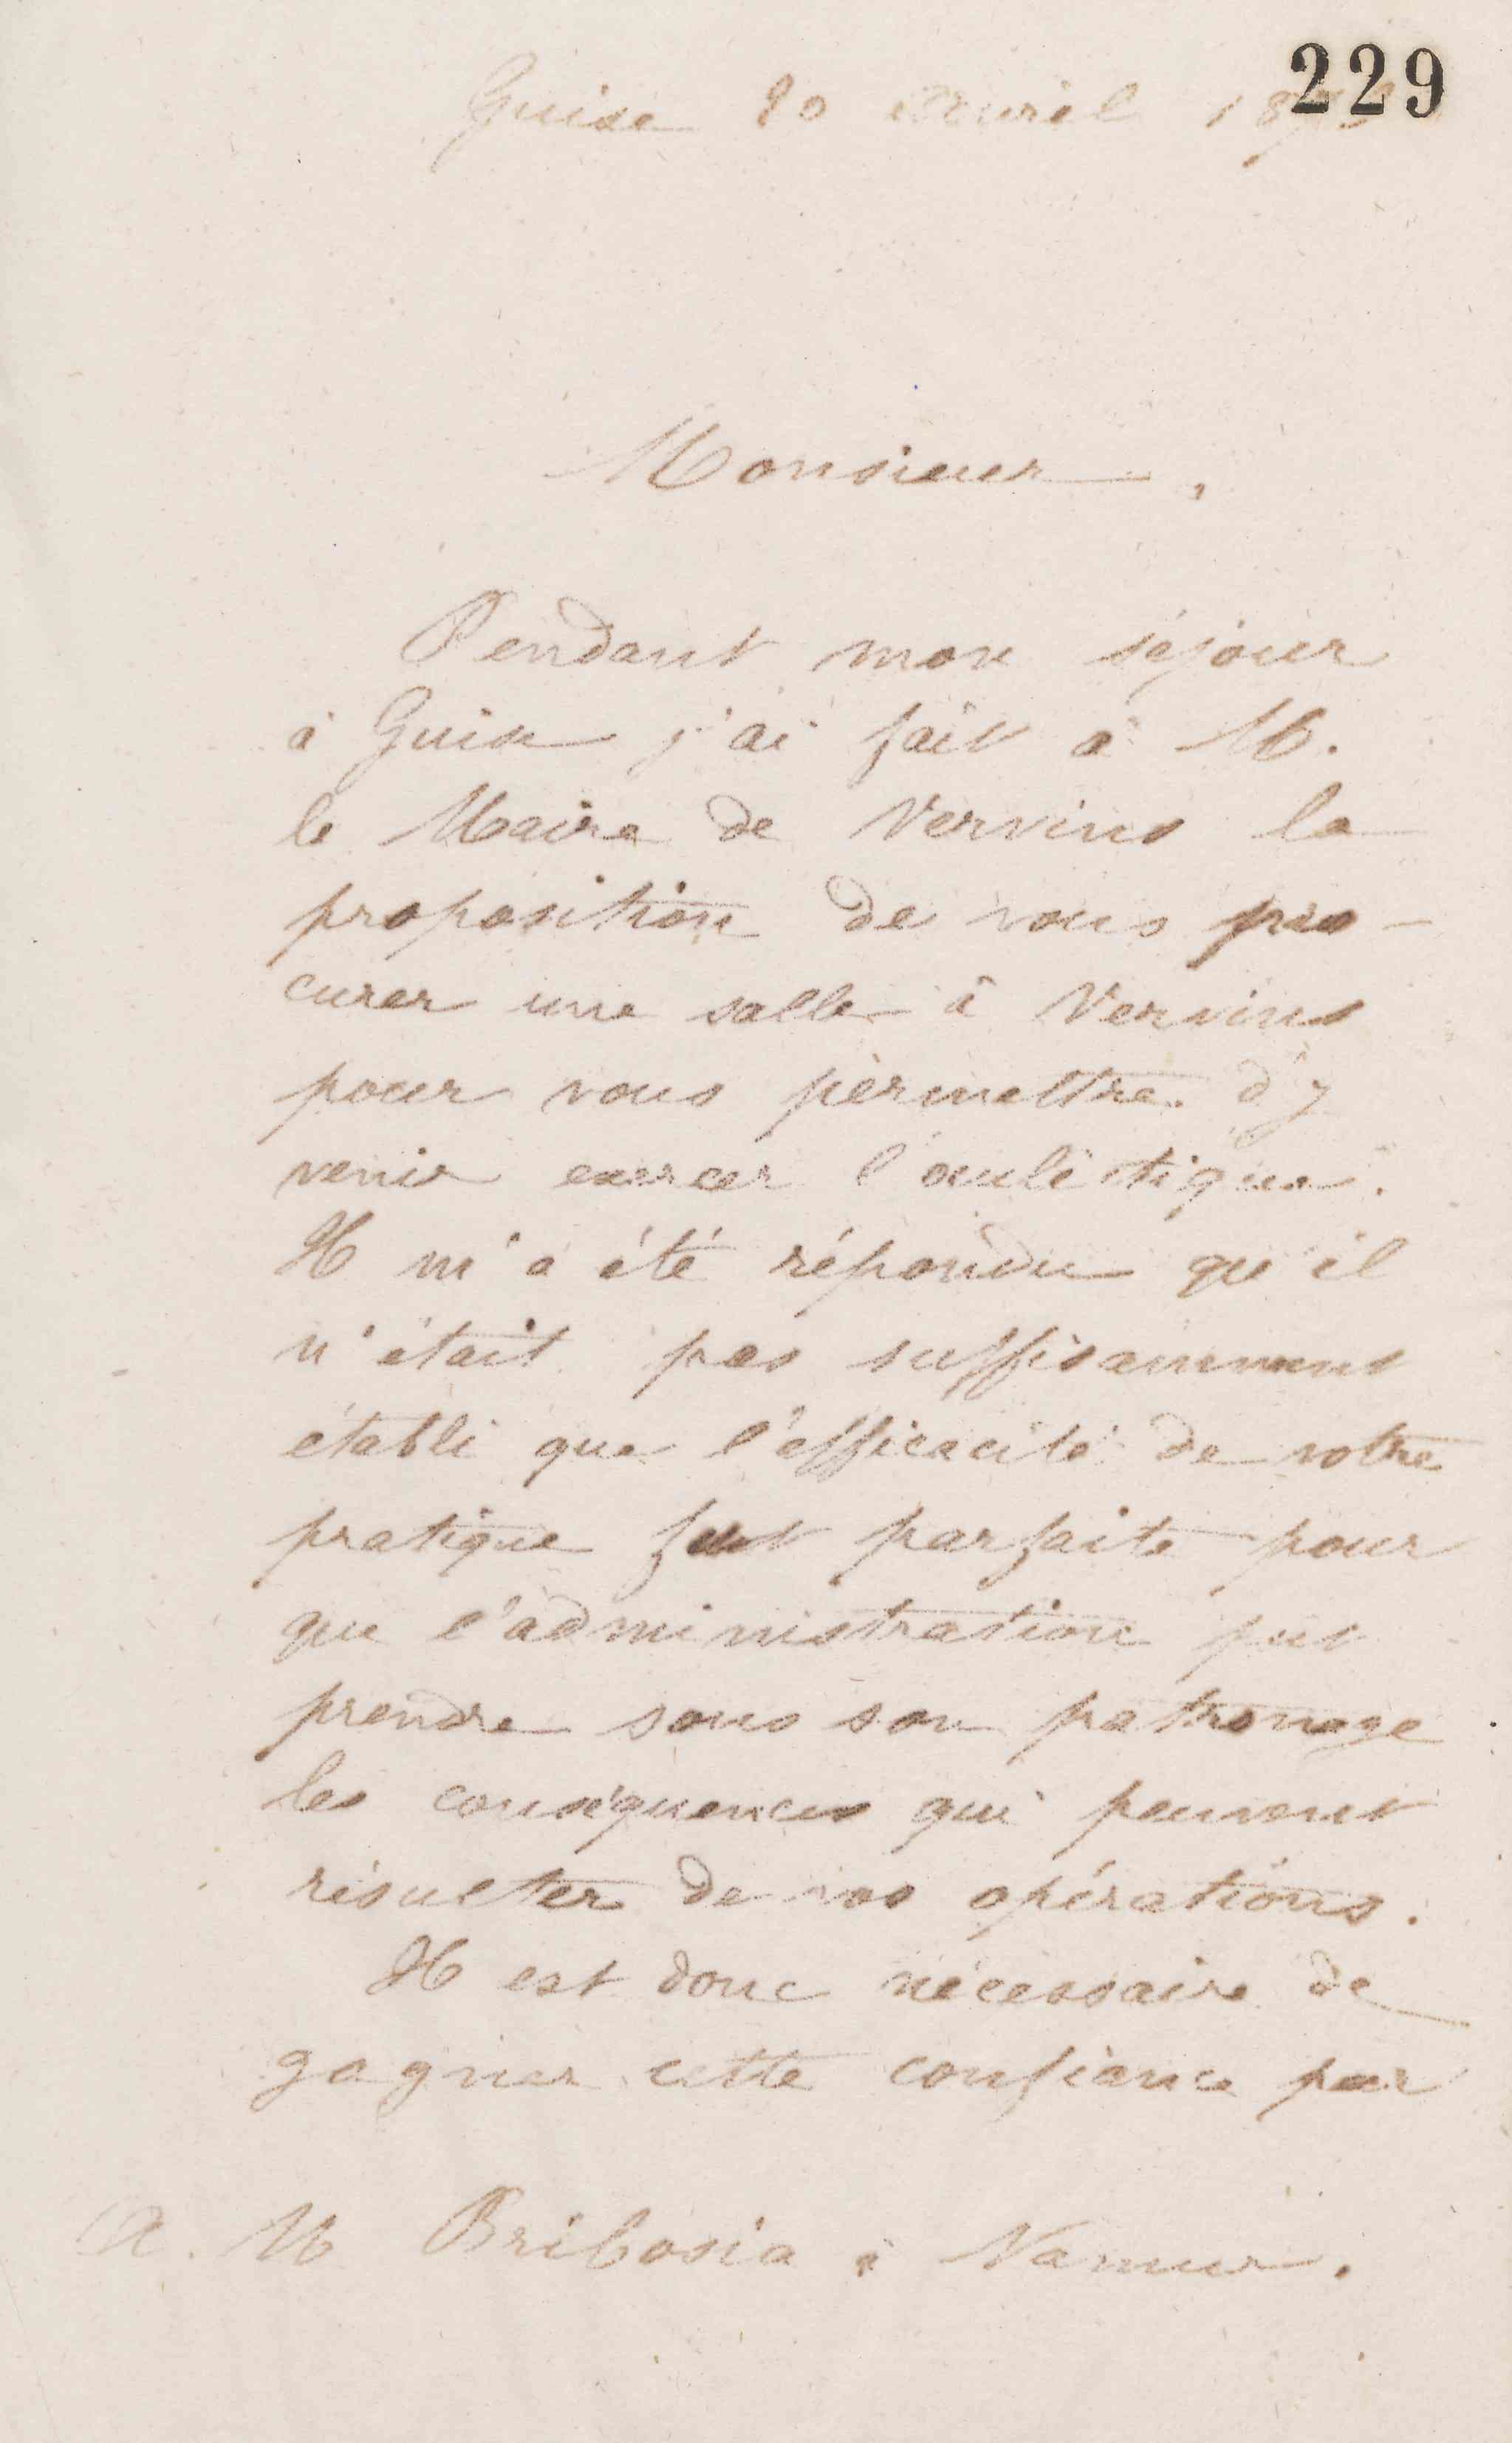 229
Guise 20 Avril 187
Monsieur,
Pendant mon séjour
à Guise j'ai fait à M.
le Maire de Vervins la
proposition de vous pro-
curer une salle à Vervins
pour vous permettre d'y
venir exercer l'oculistique.
Il m'a été répondu qu'il
n'était pas suffisamment
établi que l'efficacité de votre
pratique fut parfaite pour
que l'administration put
prendre sous son patronage
les conséquences qui peuvent
résulter de vos opérations.
Il est donc nécessaire de
gagner cette confiance par
A. M Bribosia à Namur.